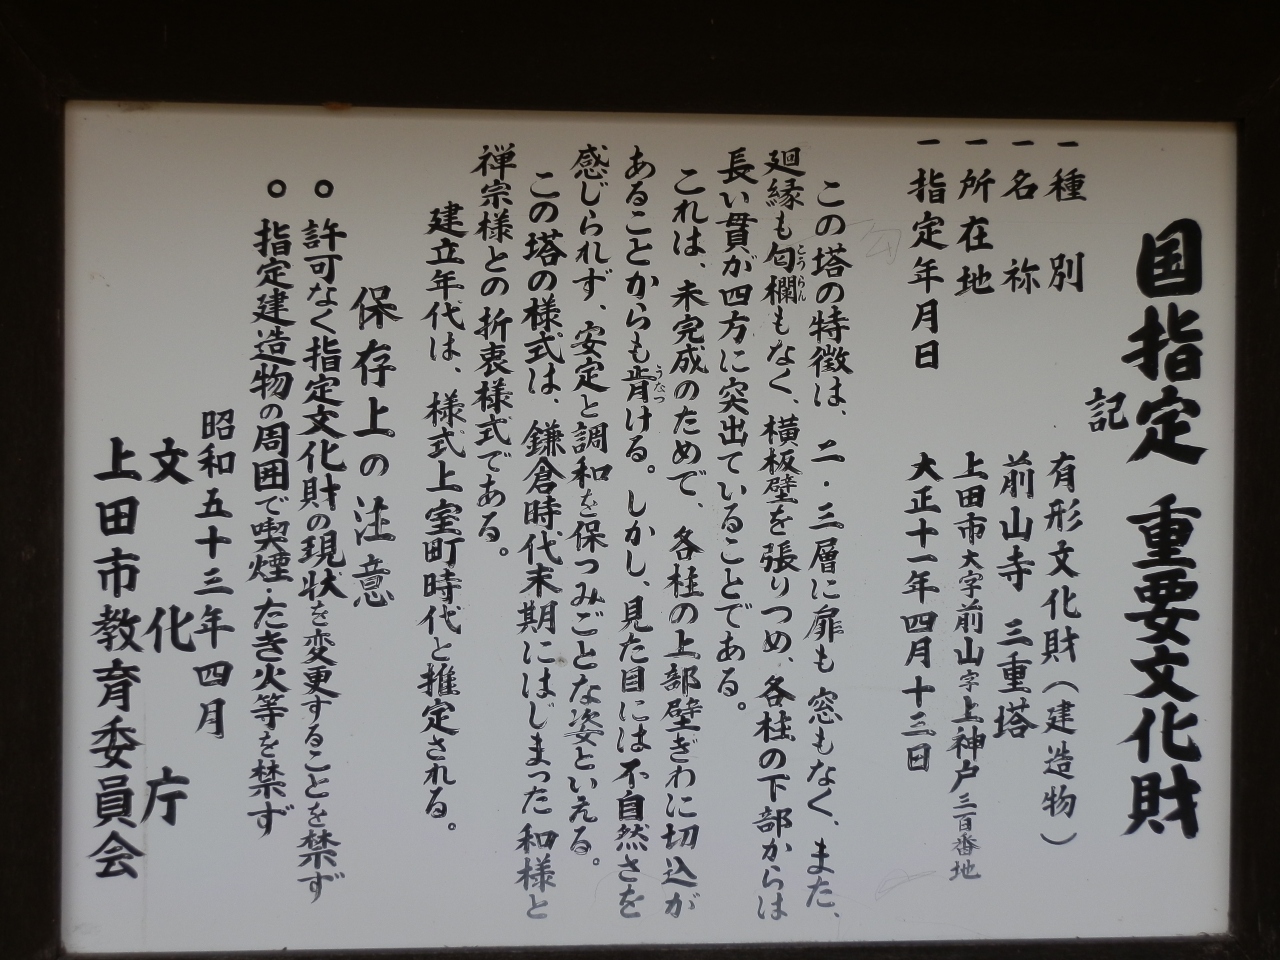 国指定 重要文化財
記
一種 別 有形文化財(建造物)
一名 祢 前山寺 三重塔
一所在地 上田市大字前山字上神戸三百番地
一指定年月日 大正十一年四月十三日
この塔の特徴は、二・三層に扉も窓もなく、また、
廻縁も匂欄もなく、横板壁を張りつめ、各柱の下部からは
こうらん
長い貫が四方に突出ていることである。
これは、未完成のためで、各柱の上部壁ぎわに切込が
あることからも肯ける。しかし、見た目には不自然さを
うなづ
感じられず、安定と調和を保つみごとな姿といえる。
この塔の様式は、鎌倉時代末期にはじまった和様と
禅宗様との折衷様式である。
建立年代は、様式上室町時代と推定される。
保存上の注意
○ 許可なく指定文化財の現状を変更することを禁ず
○ 指定建造物の周囲で喫煙・たき火等を禁ず
昭和五十三年四月
文化庁
上田市教育委員会